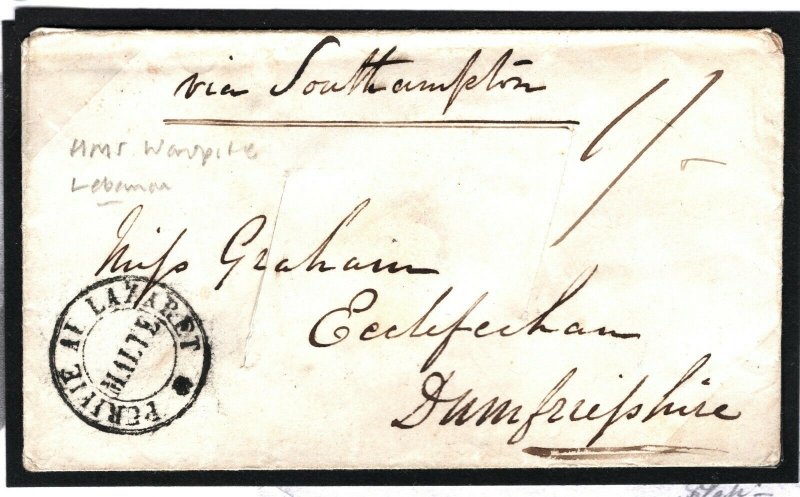 via Southampton
1/-
HMS Warspite
Lebanon
Miss Graham
Ecclefechan
Dumfriesshire
PURIFIE AU LAZARET
MALTE